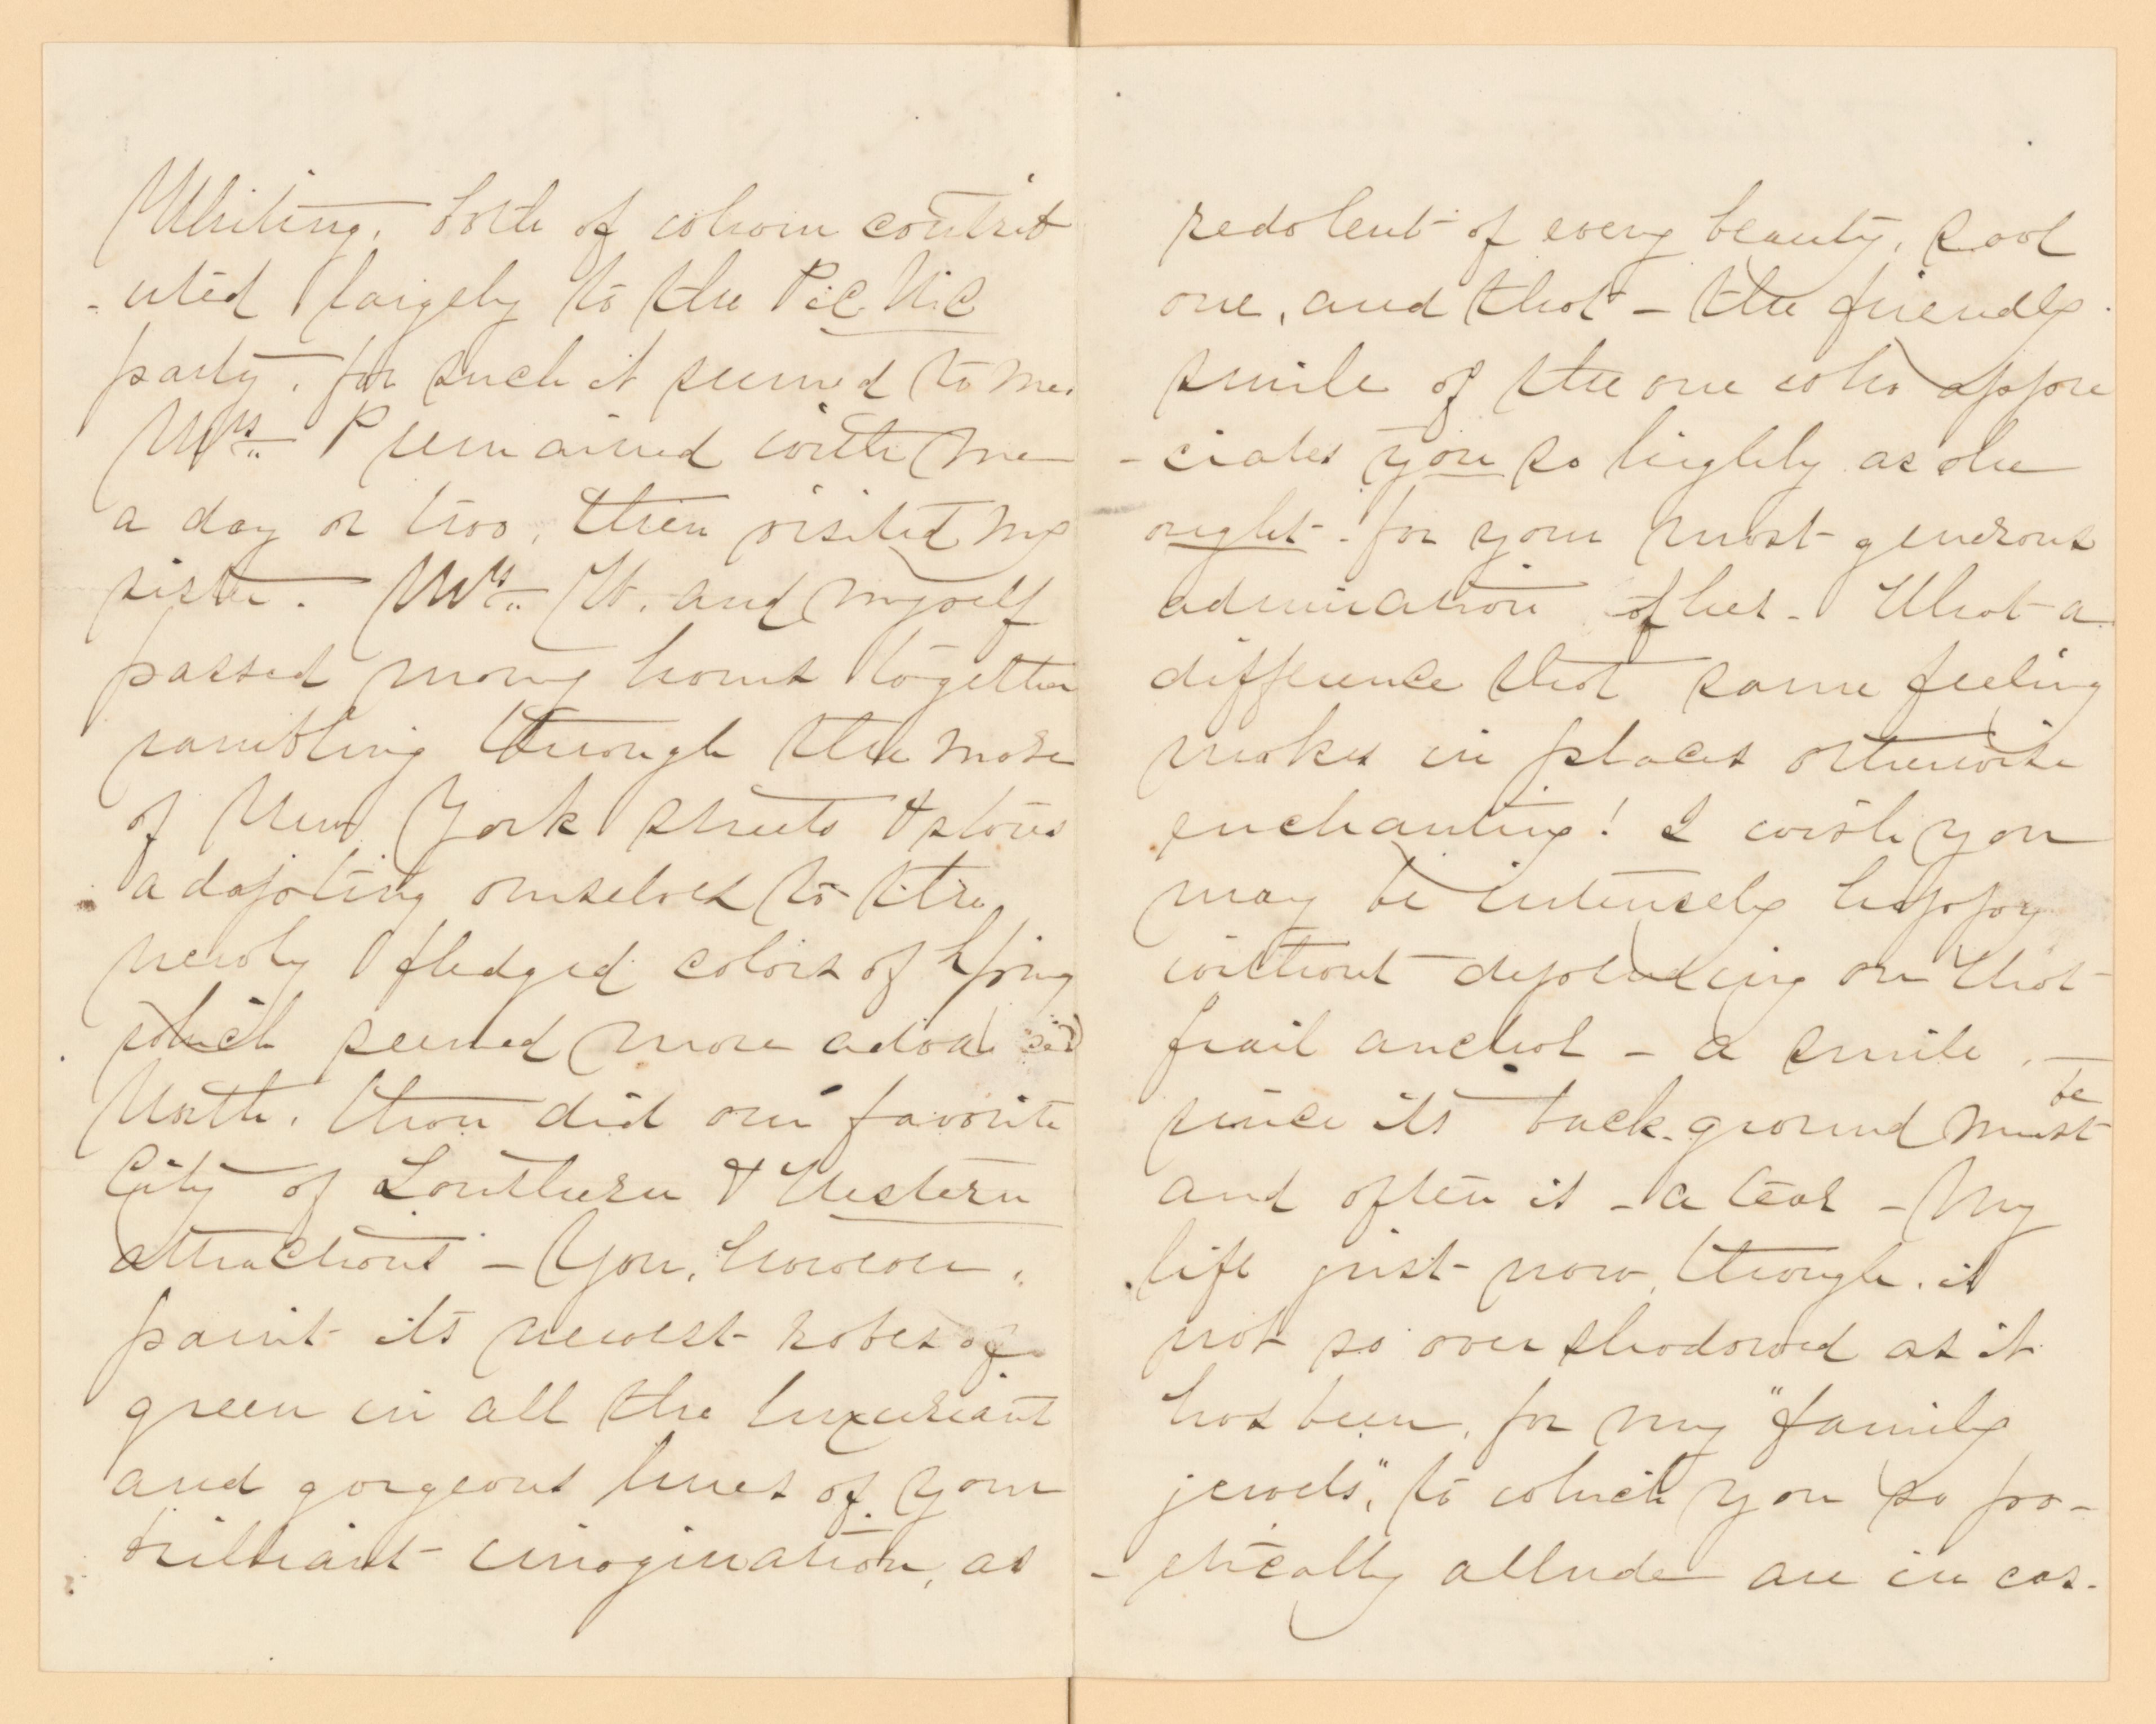 Whiting, both of whom contrib
-uted largely to the Pic Nic
party, for such it seemed to me.
Mrs. P remained with me
a day or two, then visited my
sister. Mrs. W. and myself
passed many hours together
rambling through the maze
of New York streets & stores
adapting ourselves to the
newly fledged colors of Spring
which seemed more
North, than did our favorite
City of Southern & Western
attractions - You, however,
paint its newest robes of
green in all the luxuriant
and gorgeous hues of your
brilliant imagination, as
redolent of every beauty, save
one, and that - the friendly
smile of the one who appre
-ciates you so highly as she
ought - for your most generous
admiration of her. What a
difference that same feeling
makes in places otherwise
enchanting! I wish you
may be intensely happy
without depending on that
frail anchor - a smile, -
since its back-ground must be
and often is - a tear - My
life just now, though, is
not so overshadowed as it
has been, for my "family
jewels", to which you so po-
-etically allude are in cas-